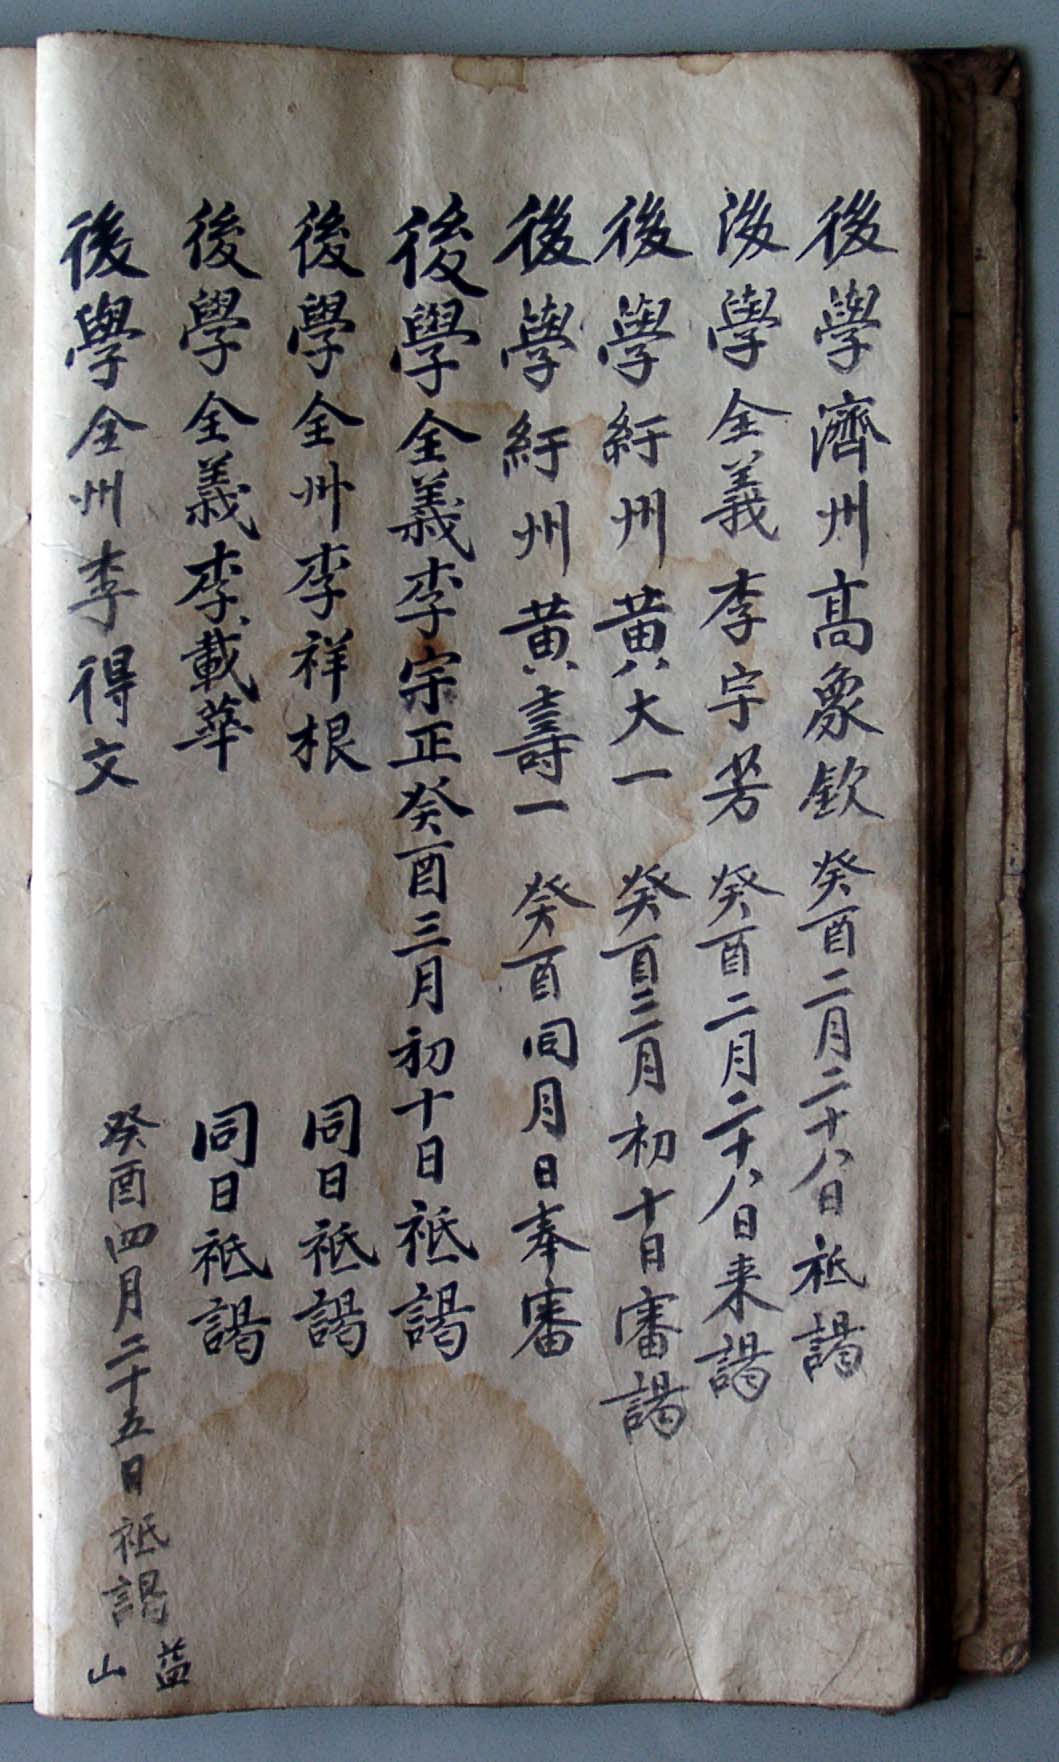 後學濟州高象欽 癸酉二月二十八日祗謁
後學全義李宇芳 癸酉二月二十八日来謁
後學紆州黄大一 癸酉三月初十日審謁
後學紆州黄壽一 癸酉同月日奉審
後學全義李宗正癸酉三月初十日祗謁
後學全州李祥根 同日祗謁
後學全義李載華 同日祗謁
後學全州李得文 癸酉四月二十五日祗謁 益山